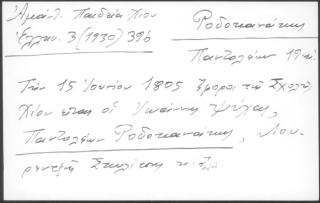 Ἀμάντ. Παιδεία Χίου
Ἑλλην. 3 (1930) 396
Ροδοκανάκης
Παντολέων 19 αἰ.
Τὴν 15 Ἰουνίου 1805 ἔφοροι τῆς Σχολῆς
Χίου ἦσαν οἱ Ἰωάννης Ψύχας,
Παντολέων Ροδοκανάκης, Λου-
ρεντζῆς Σκυλίτσης κ.ἄλ.